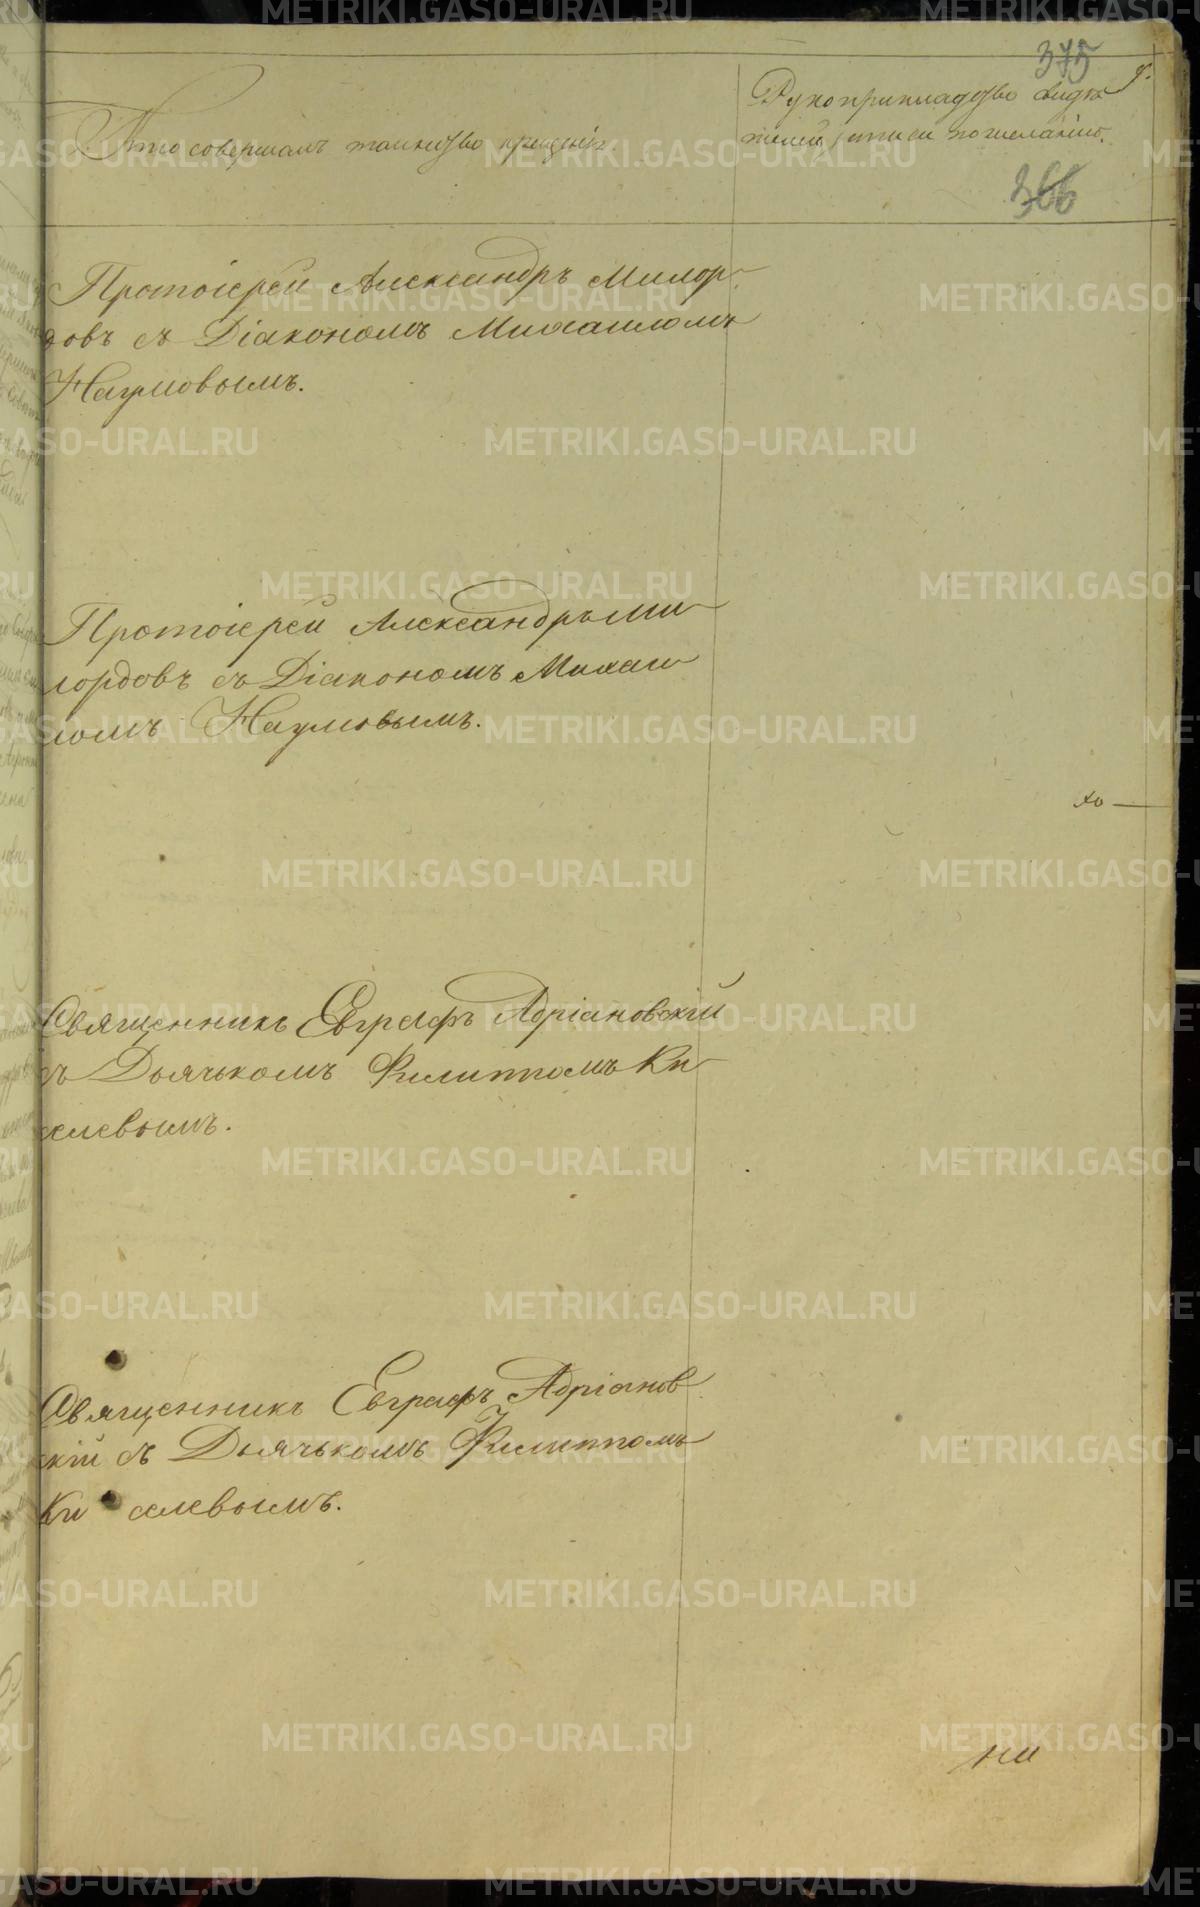 375
Кто совершалъ таинство крещенія.
Рукоприкладство свидѣ
телей записи по желанію.
366
Протоіерей Александръ Милор-
довъ съ Діакономъ Михаиломъ
Наумовымъ.
Протоіерей Александръ Ми
лордовъ съ Діакономъ Михаи
ломъ Наумовымъ.
Священникъ Евграфъ Адріановскій
съ Дьячькомъ Филиппомъ Ки
селевымъ.
Священникъ Евграфъ Адріанов
скій съ Дьячькомъ Филиппомъ
Ки селевымъ.
METRIKI.GASO-URAL.RU